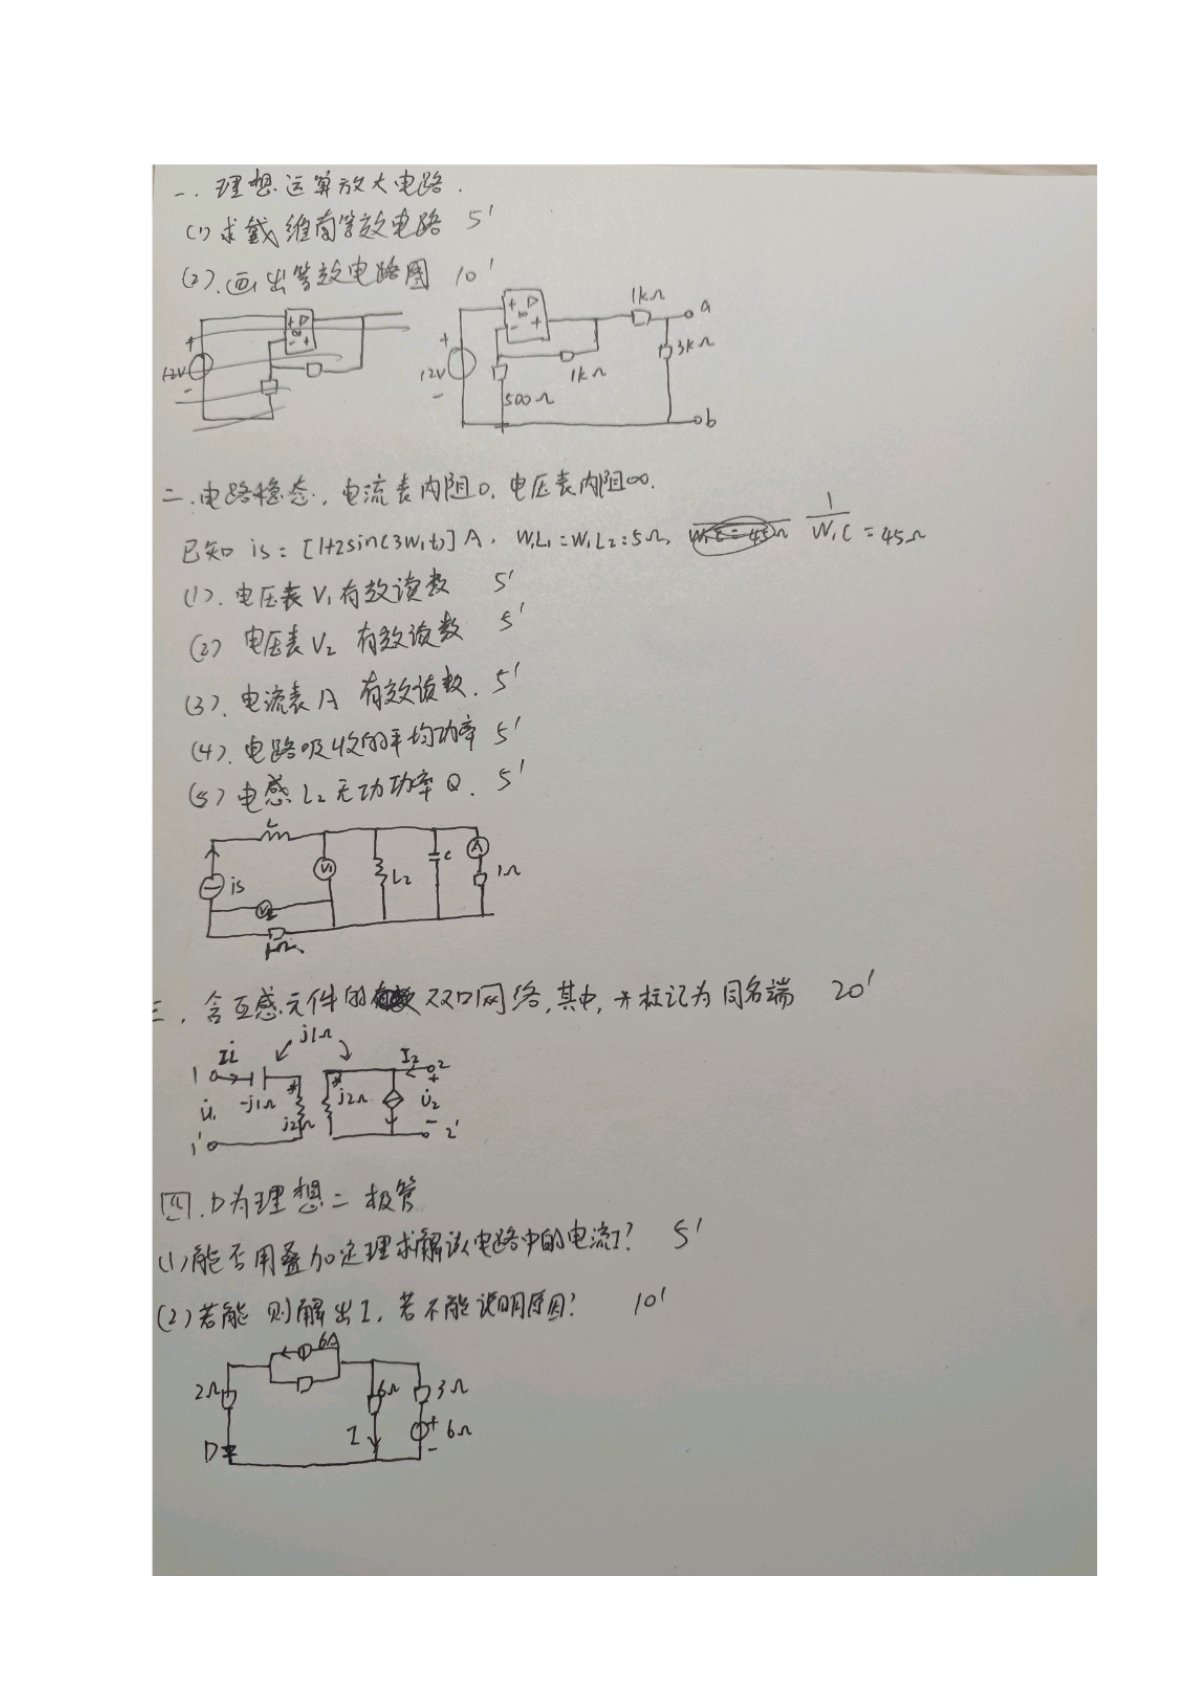 一. 理想运算放大电路.
(1) 求戴维南等效电路 5'
(2). 画出等效电路图 10'
12V
+
-
+ ▷
∞
- +
12V
+
-
+ ▷
∞
- +
1kΩ
a
3kΩ
1kΩ
500Ω
b
二. 电路稳态, 电流表内阻0, 电压表内阻∞.
已知 is = [1+2sin(3W₁t)] A, W₁L₁ = W₁L₂ = 5Ω, 1/W₁C = 45Ω
(1). 电压表 V₁ 有效读数 5'
(2) 电压表 V₂ 有效读数 5'
(3). 电流表 A 有效读数. 5'
(4). 电路吸收的平均功率 5'
(5) 电感 L₂ 无功功率 Q. 5'
is
V₁
V₂
L₂
C
A
1Ω
三. 含互感元件的双口网络, 其中, *标记为同名端 20'
j1Ω
1
-j1Ω
*
j2Ω
*
j2Ω
I₂
2
+
U̇₁
U̇₂
-
1'
2'
四. D为理想二极管
(1) 能否用叠加定理求解该电路中的电流I? 5'
(2) 若能 则解出 I, 若不能说明原因? 10'
6A
2Ω
6Ω
3Ω
I
+
6Ω
-
D